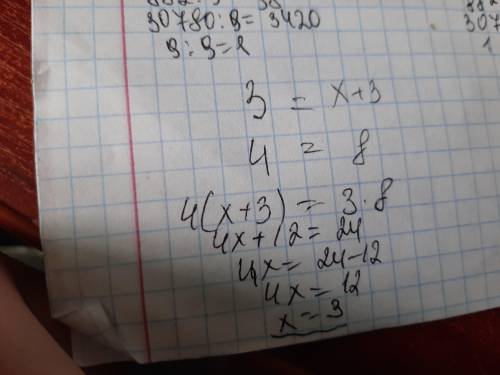 30780:9=3420
9:9=1
307
1
3 = x+3
4 = 8
4(x+3) = 3·8
4x+12=24
4x= 24-12
4x=12
x=3